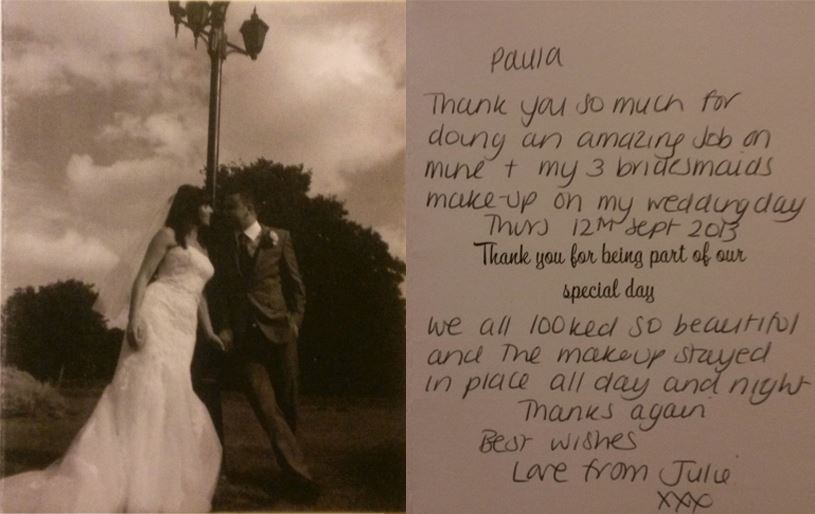 Paula
Thank you so much for
doing an amazing Job on
mine + my 3 bridesmaids
make-up on my wedding day
Thurs 12th Sept 2013
Thank you for being part of our
special day
we all looked so beautiful
and the makeup stayed
in place all day and night
Thanks again
Best wishes
Love from Julie
xxx